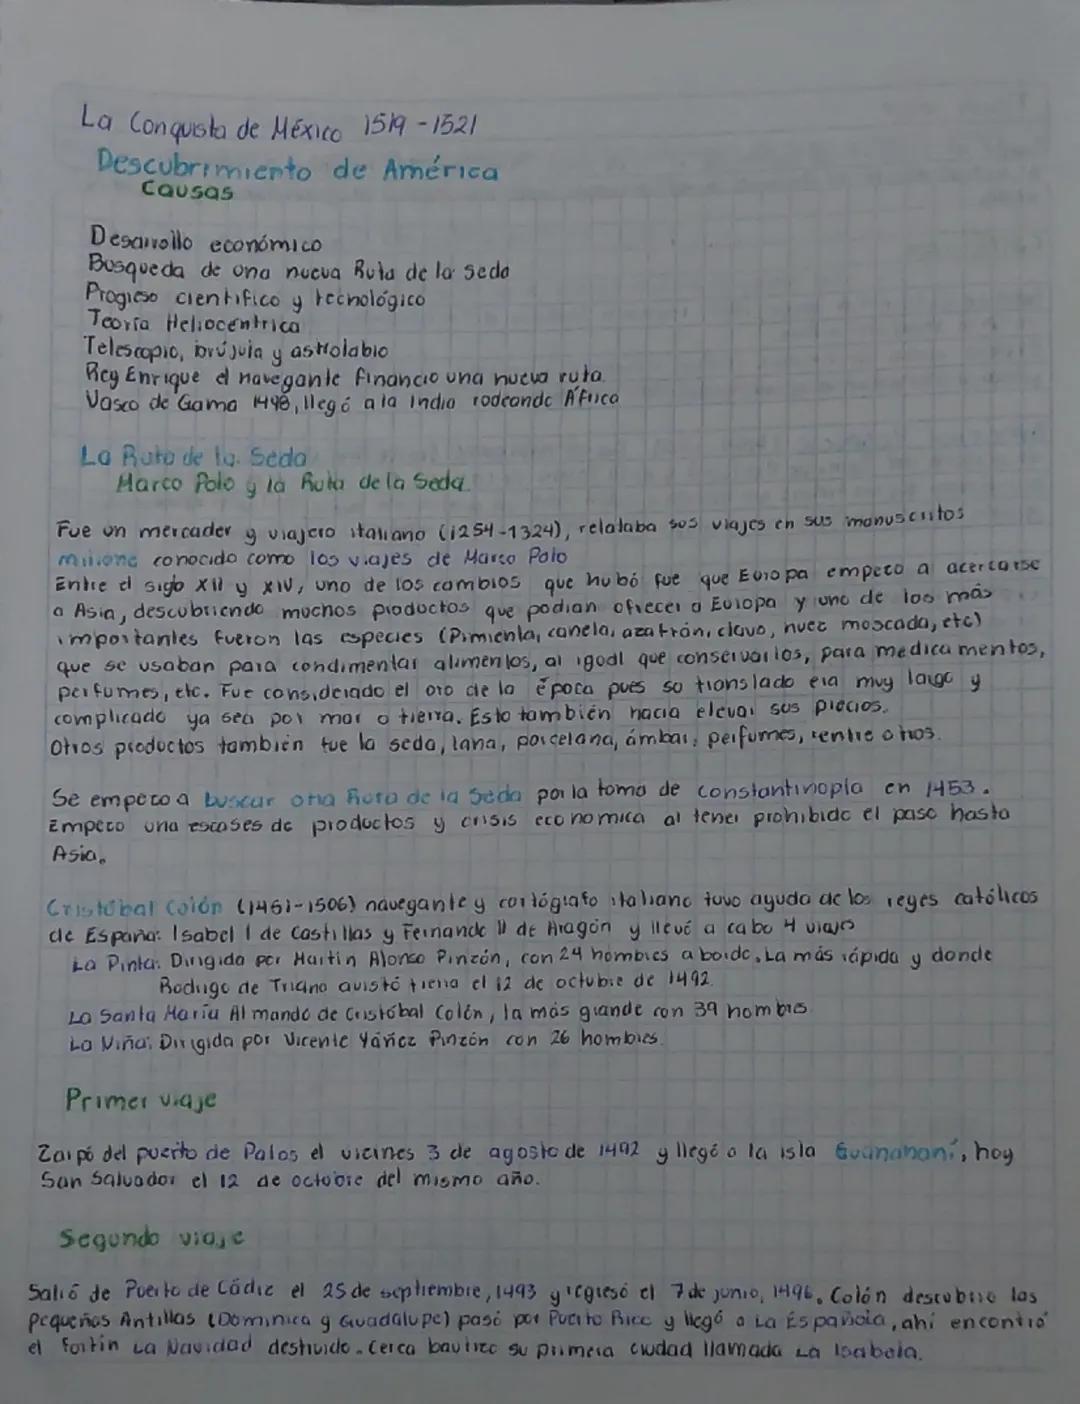 La Conquista de México 1519-1521
Descubrimiento de América
Causas
Desarrollo económico
Busqueda de una nueva Ruta de la seda
Progreso cientifico y tecnológico
Teoría Heliocéntrica
Telescopio, brújula y astrolabio
Rey Enrique el navegante financio una nueva ruta.
Vasco de Gama 1498, llegó a la India rodeando África
La Ruta de la Seda
Marco Polo y la Ruta de la Seda.
Fue un mercader y viajero italiano (1254-1324), relataba sus viajes en sus manuscritos
milione conocido como los viajes de Marco Polo
Entre el siglo XII y XIV, uno de los cambios que hubó fue que Europa empezo a acercarse
a Asia, descubriendo muchos productos que podian ofrecer a Europa y uno de los más
importantes fueron las especies (Pimienta, canela, azafrán, clavo, nuez moscada, etc)
que se usaban para condimentar alimentos, al igual que conservarlos, para medicamentos,
perfumes, etc. Fue considerado el oro de la época pues su translado era muy largo y
complicado ya sea por mar o tierra. Esto también hacia elevar sus precios.
Otros productos también fue la seda, lana, porcelana, ámbar, perfumes, entre otros.
Se empezo a buscar otra Ruta de la Seda por la toma de Constantinopla en 1453.
Empezo una escases de productos y crisis economica al tener prohibido el paso hasta
Asia.
Cristóbal Colón (1451-1506) navegante y cartógrafo italiano tuvo ayuda de los reyes católicos
de España: Isabel I de Castillas y Fernando II de Aragón y llevó a cabo 4 viajes
La Pinta: Dirigida por Martin Alonso Pinzón, con 24 hombres a bordo. La más rápida y donde
Rodrigo de Triana avistó tierra el 12 de octubre de 1492.
La Santa María Al mando de Cristóbal Colón, la más grande con 39 hombres
La Niña: Dirigida por Vicente Yáñez Pinzón con 26 hombres.
Primer viaje
Zarpó del puerto de Palos el viernes 3 de agosto de 1492 y llegó a la isla Guanahaní, hoy
San Salvador el 12 de octubre del mismo año.
Segundo viaje
Salió de Puerto de Cádiz el 25 de septiembre, 1493 y regresó el 7 de junio, 1496. Colón descubrio las
Pequeñas Antillas (Dominica y Guadalupe) pasó por Puerto Rico y llegó a La Española, ahí encontró
el fortín La Navidad destruido. Cerca bautizo su primera ciudad llamada La Isabela.